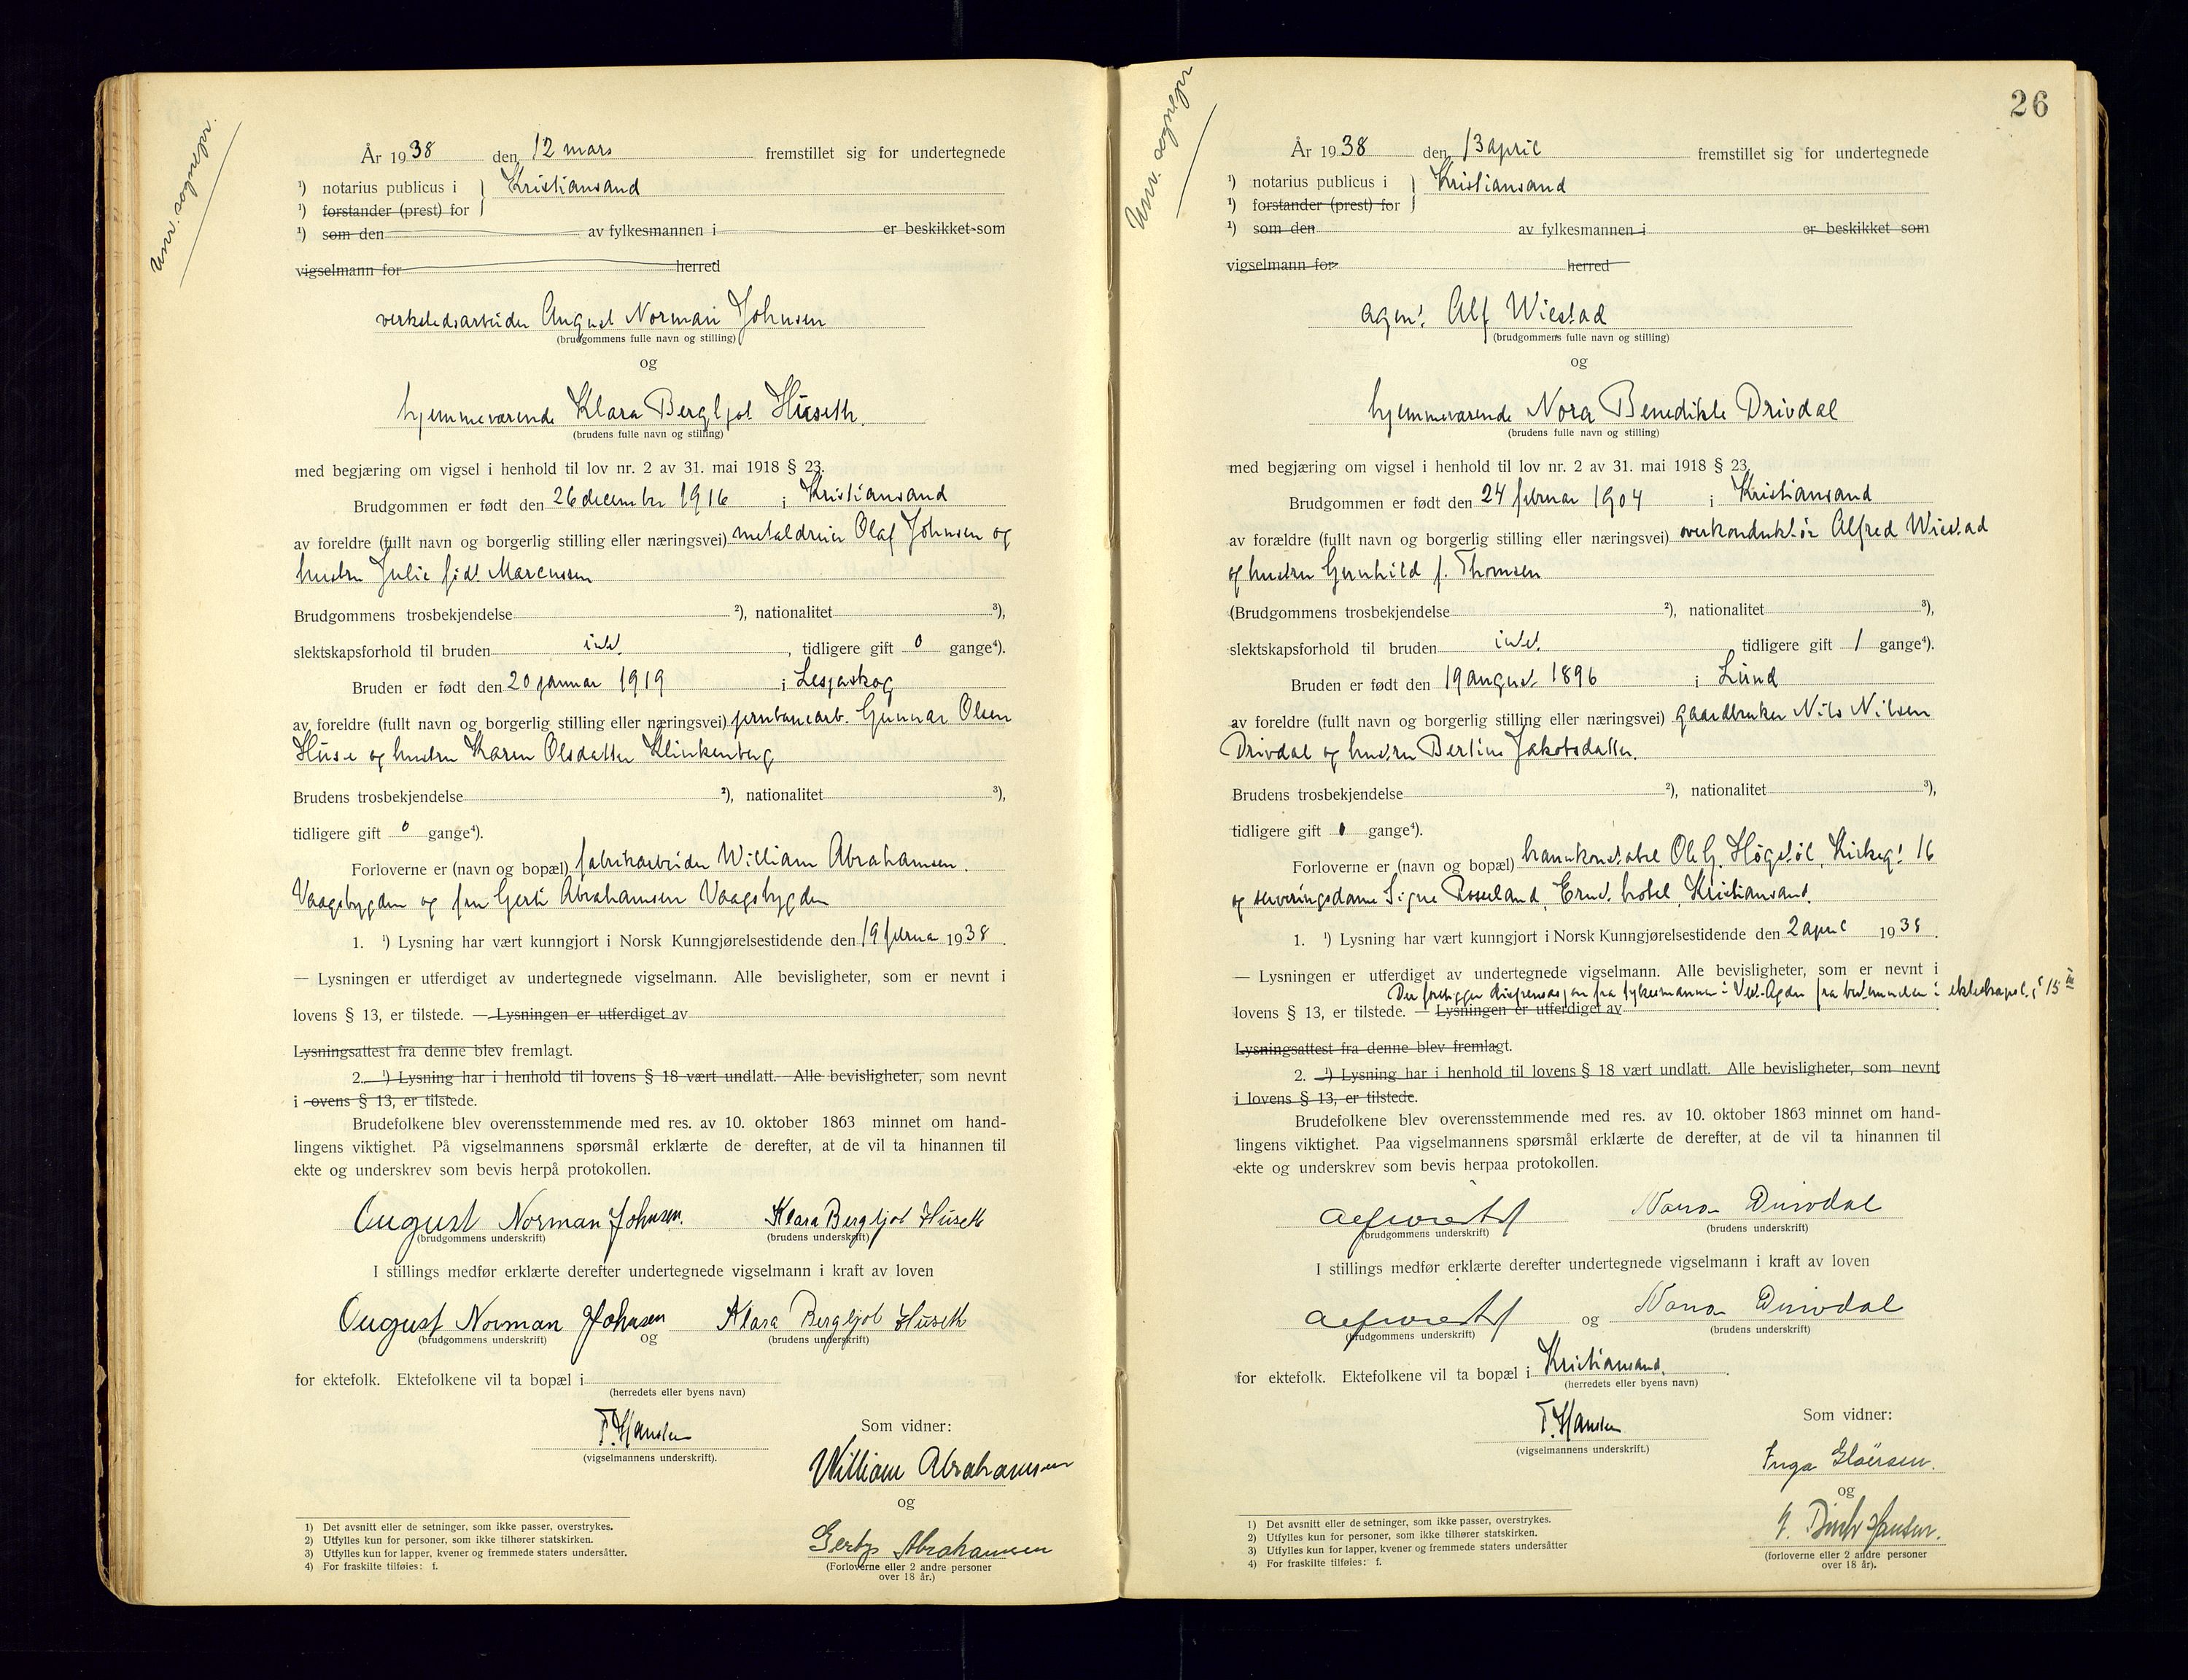 Unv. sognepr.
År 1938 den 12 mars fremstillet sig for undertegnede
¹) notarius publicus i } Kristiansand
¹) forstander (prest) for
¹) som den av fylkesmannen i er beskikket som
vigselmann for herred
verkstedsarbeider August Norman Johnsen
(brudgommens fulle navn og stilling)
og
hjemmeværende Klara Bergljot Huseth.
(brudens fulle navn og stilling)
med begjæring om vigsel i henhold til lov nr. 2 av 31. mai 1918 § 23.
Brudgommen er født den 26 december 1916 i Kristiansand
av foreldre (fullt navn og borgerlig stilling eller næringsvei) metaldreier Olaf Johnsen og
hustru Julie født Marcussen
Brudgommens trosbekjendelse ²), nationalitet ³),
slektskapsforhold til bruden intet , tidligere gift 0 gange⁴).
Bruden er født den 20 januar 1919 i Lesjaskog
av foreldre (fullt navn og borgerlig stilling eller næringsvei) jernbanearb. Gunnar Olsen
Huse og hustru Karen Olsdatter Klinkenberg
Brudens trosbekjendelse ²), nationalitet ³),
tidligere gift 0 gange⁴).
Forloverne er (navn og bopæl) fabrikarbeider William Abrahamsen.
Vaagsbygden og fru Gerti Abrahamsen Vaagsbygden
1. ¹) Lysning har vært kunngjort i Norsk Kunngjørelsestidende den 19 februa 1938.
— Lysningen er utferdiget av undertegnede vigselmann. Alle bevisligheter, som er nevnt i
lovens § 13, er tilstede. — Lysningen er utferdiget av
Lysningsattest fra denne blev fremlagt.
2. ¹) Lysning har i henhold til lovens § 18 vært undlatt. Alle bevisligheter, som nevnt
i ovens § 13, er tilstede.
Brudefolkene blev overensstemmende med res. av 10. oktober 1863 minnet om hand-
lingens viktighet. På vigselmannens spørsmål erklærte de derefter, at de vil ta hinannen til
ekte og underskrev som bevis herpå protokollen.
August Norman Johnsen. Klara Bergljot Huseth
(brudgommens underskrift) (brudens underskrift)
I stillings medfør erklærte derefter undertegnede vigselmann i kraft av loven
August Norman Johnsen og Klara Bergljot Huseth
(brudgommens underskrift) (brudens underskrift)
for ektefolk. Ektefolkene vil ta bopæl i
(herredets eller byens navn)
F. Hansen
(vigselmannens underskrift).
Som vidner:
William Abrahamsen
og
Gerty Abrahamsen
(Forloverne eller 2 andre personer
over 18 år.)
1) Det avsnitt eller de setninger, som ikke passer, overstrykes.
2) Utfylles kun for personer, som ikke tilhører statskirken.
3) Utfylles kun for lapper, kvener og fremmede staters undersåtter.
4) For fraskilte tilføies: f.
26
Unv. sognepr
År 1938 den 13 april fremstillet sig for undertegnede
¹) notarius publicus i } Kristiansand
¹) forstander (prest) for
¹) som den av fylkesmannen i er beskikket som
vigselmann for herred
agent Alf Wiestad
(brudgommens fulle navn og stilling)
og
hjemmeværende Nora Benedikte Drivdal
(brudens fulle navn og stilling)
med begjæring om vigsel i henhold til lov nr. 2 av 31. mai 1918 § 23.
Brudgommen er født den 24 februar 1904 i Kristiansand
av forældre (fullt navn og borgerlig stilling eller næringsvei) overkonduktör Alfred Wiestad
og hustru Gunhild f. Thomsen
(Brudgommens trosbekjendelse ²), nationalitet ³),
slektskapsforhold til bruden intet tidligere gift 1 gange⁴).
Bruden er født den 19 august 1896 i Lund
av foreldre (fullt navn og borgerlig stilling eller næringsvei) gaardbruker Nils Nilsen
Drivdal og hustru Bertine Jakobsdatter.
Brudens trosbekjendelse ²), nationalitet ³),
tidligere gift 0 gange⁴).
Forloverne er (navn og bopæl) brannkonstabel Ole G. Høgstøl, Kirkegt 16
og serveringsdame Signe Rosseland, Ernst hotel, Kristiansand.
1. ¹) Lysning har vært kunngjort i Norsk Kunngjørelsestidende den 2 april 1938.
— Lysningen er utferdiget av undertegnede vigselmann. Alle bevisligheter, som er nevnt i
Der foreligger dispensasjon fra fylkesmannen i Vest-Agder fra bestemmelsen i ekteskapsl.s § 15
lovens § 13, er tilstede. — Lysningen er utferdiget av
Lysningsattest fra denne blev fremlagt.
2. ¹) Lysning har i henhold til lovens § 18 vært undlatt. Alle bevisligheter, som nevnt
i lovens § 13, er tilstede.
Brudefolkene blev overensstemmende med res. av 10. oktober 1863 minnet om hand-
lingens viktighet. Paa vigselmannens spørsmål erklærte de derefter, at de vil ta hinannen til
ekte og underskrev som bevis herpaa protokollen.
Alf Wiestad Nora Drivdal
(brudgommens underskrift) (brudens underskrift)
I stillings medfør erklærte derefter undertegnede vigselmann i kraft av loven
Alf Wiestad og Nora Drivdal
(brudgommens underskrift) (brudens underskrift)
for ektefolk. Ektefolkene vil ta bopæl i Kristiansand.
(herredets eller byens navn)
F. Hansen
(vigselmannens underskrift.)
Som vidner:
Inga Glöersen.
og
Hansen.
(forloverne eller 2 andre personer
over 18 år).
1) Det avsnitt eller de setninger, som ikke passer, overstrykes.
2) Utfylles kun for personer, som ikke tilhører statskirken.
3) Utfylles kun for lapper, kvener og fremmede staters undersåtter
4) For fraskilte tilføies: f.